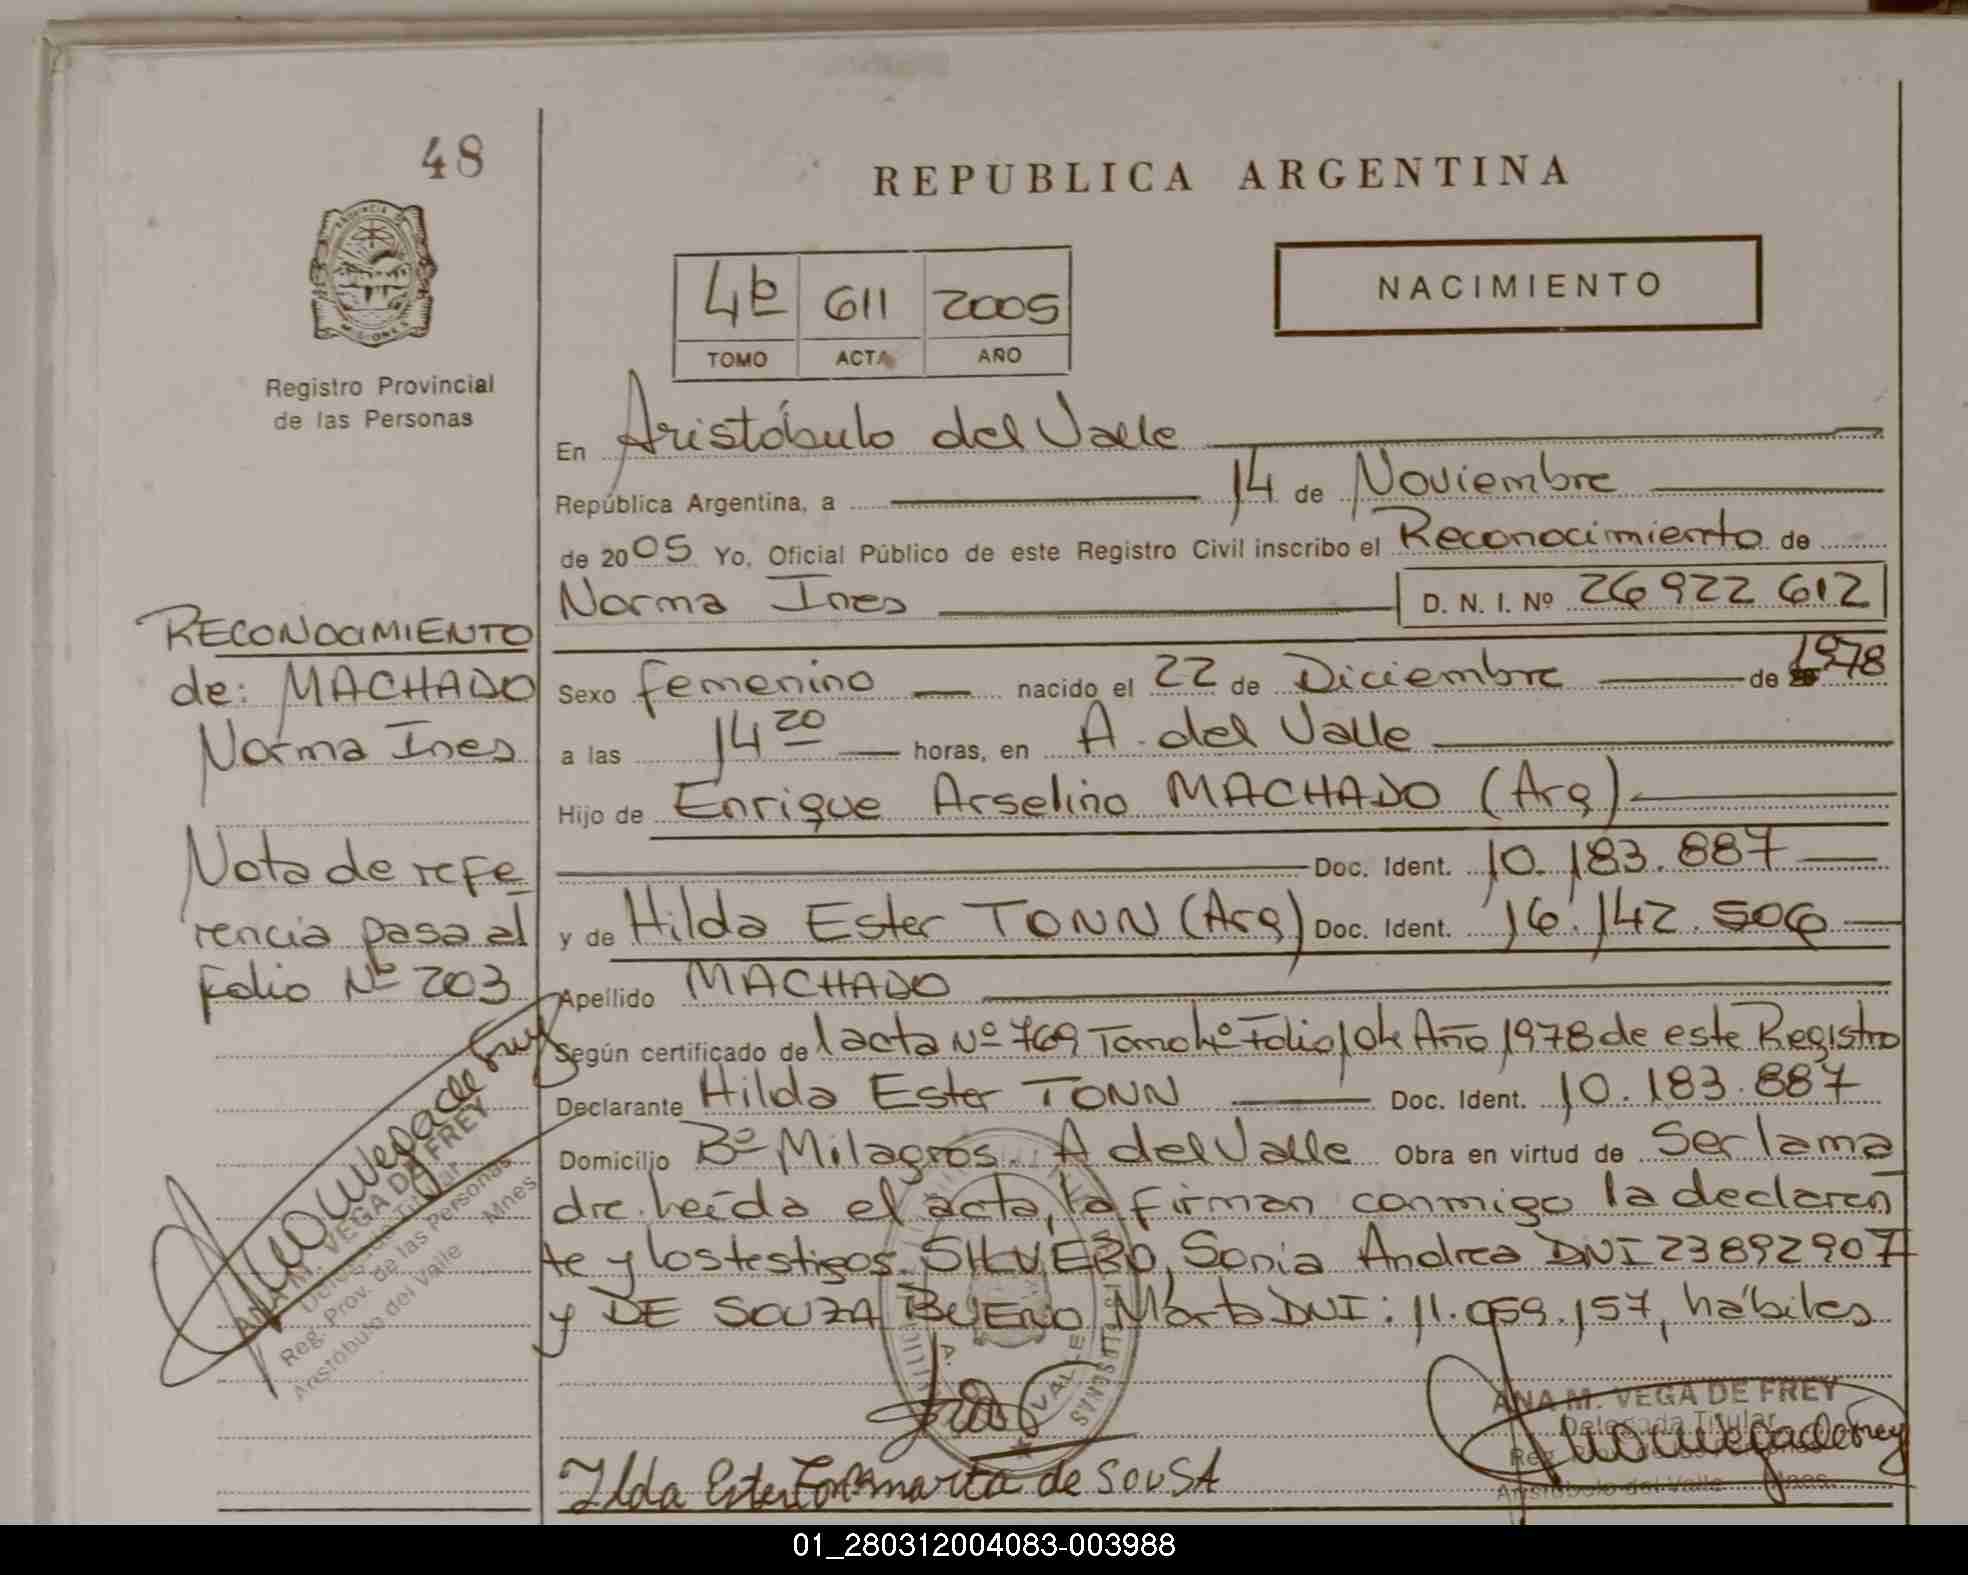 48
REPUBLICA ARGENTINA
NACIMIENTO
4º 611 2005
TOMO ACTA AÑO
Registro Provincial
de las Personas
En Aristóbulo del Valle
República Argentina, a 14 de Noviembre
de 2005 Yo, Oficial Público de este Registro Civil inscribo el Reconocimiento de
Norma Ines D. N. I. Nº 26922612
Sexo femenino nacido el 22 de Diciembre de 1978
a las 14 20 horas, en A. del Valle
Hijo de Enrique Arselino MACHADO (Arg)
Doc. Ident. 10.183.887
y de Hilda Ester TONN (Arg) Doc. Ident. 16.142.506
Apellido MACHADO
Según certificado de lacta Nº 769 Tomo 4º Folio 104 Año 1978 de este Registro
Declarante Hilda Ester TONN Doc. Ident. 10.183.887
Domicilio Bº Milagros. A del Valle Obra en virtud de Ser la ma
dre. Leída el acta, la firman conmigo la declaran
te y los testigos. SILVERO, Sonia Andrea DNI 23892907
y DE SOUZA BUENO Marta DNI: 11.059.157, hábiles
RECONOCIMIENTO
de: MACHADO
Norma Ines
Nota de refe
rencia pasa al
Folio Nº 203
ANA M. VEGA DE FREY
Delegada Titular
Reg. Prov. de las Personas
Aristóbulo del Valle Mnes
Ilda Ester Ton marta de SOUSA
ANA M. VEGA DE FREY
Delegada Titular
Aristóbulo del Valle Mnes.
01_280312004083-003988